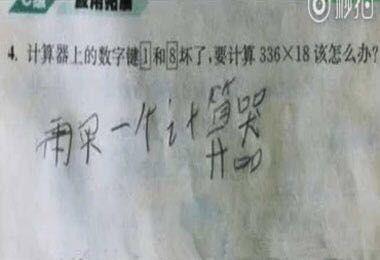 应用拓展
秒拍
4. 计算器上的数字键1和8坏了,要计算 336×18 该怎么办?
再买一个计算器